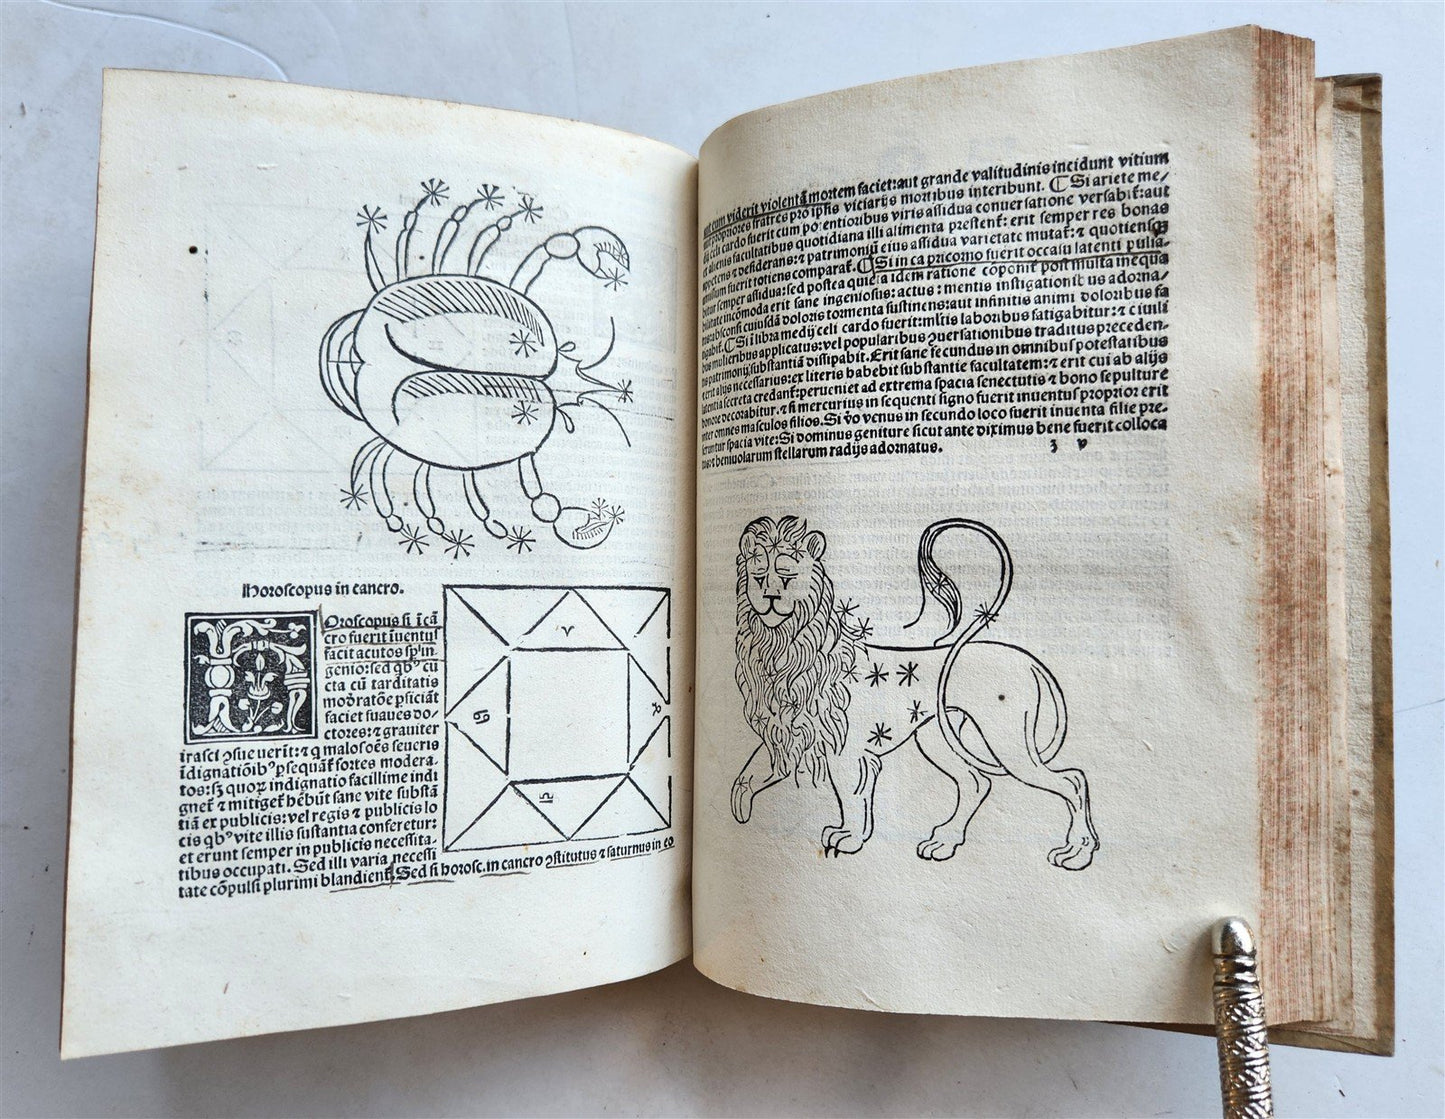 Horoscopus in cancro.
Oroscopus si ī cā
cro fuerit īuentus
facit acutos sp̄ in
genio: sed qb᾽ cū
cta cū tarditatis
moderatōe
faciet suaues do/
ctores: ⁊ grauiter
irasci ꝯsue uerīt: ⁊ q malos oēs seueris
īdignatiōib᾽ ꝑsequāt̄ fortes modera.
tos: sꝫ quoꝝ indignatio facillime indi
gnet̄ ⁊ mitiget̄ hēbūt sane vite substā
tiā ex publicis: vel regis ⁊ publicis lo
cis qb᾽ vite illis sustantia conferetur:
et erunt semper in publicis necessita.
tibus occupati. Sed illi varia necessi
tate cōpulsi plurimi blandient̄. Sed si horosc. in cancro ꝯstitutus ⁊ saturnus in eo
aut cum viderit violentā mortem faciet: aut grande valitudinis incidunt vitium
propriores fratres pro ip̄is viciarijs moribus interibunt. ⸿ Si ariete me/
dij celi cardo fuerit cum potentioribus viris assidua conuersatione versabit̄: aut
et alienis facultatibus quotidiana illi alimenta prestent̄: erit semper res bonas
appetens ⁊ desiderans: ⁊ patrimoniū eius assidua varietate mutat̄: ⁊ quotiens
fuerit totiens comparat̄. ⸿ Si in capricorno fuerit occasu latenti pulsa
bitur semper assidua: sed postea quieta idem ratione cōponit̄ post multa inequa
bilitate incōmoda erit sane ingeniosus: actus: mentis instigationibus adorna/
absconsi cuiusdā doloris tormenta sustinens: aut infinitis animi doloribus fa
tigabit̄. ⸿ Si in libra medij celi cardo fuerit: ml̄tis laboribus fatigabitur: ⁊ ciuili
bus mulieribus applicatus: vel popularibus ꝯuersationibus traditus preceden-
tis patrimonij substantiā dissipabit. Erit sane fecundus in omnibus potestatibus
erit alijs necessarius: ex literis habebit substantie facultatem: ⁊ erit cui ab alijs
latentia secreta credant̄: perueniet ad extrema spacia senectutis ⁊ bono sepulture
honore decorabitur. ⁊ si mercurius in sequenti signo fuerit inuentus proprior erit
inter omnes masculos filios. Si vo venus in secundo loco fuerit inuenta filie pre-
feruntur spacia vite: Si dominus geniture sicut ante diximus bene fuerit colloca
tus: ⁊ beniuolarum stellarum radijs adornatus.
ꝫ v